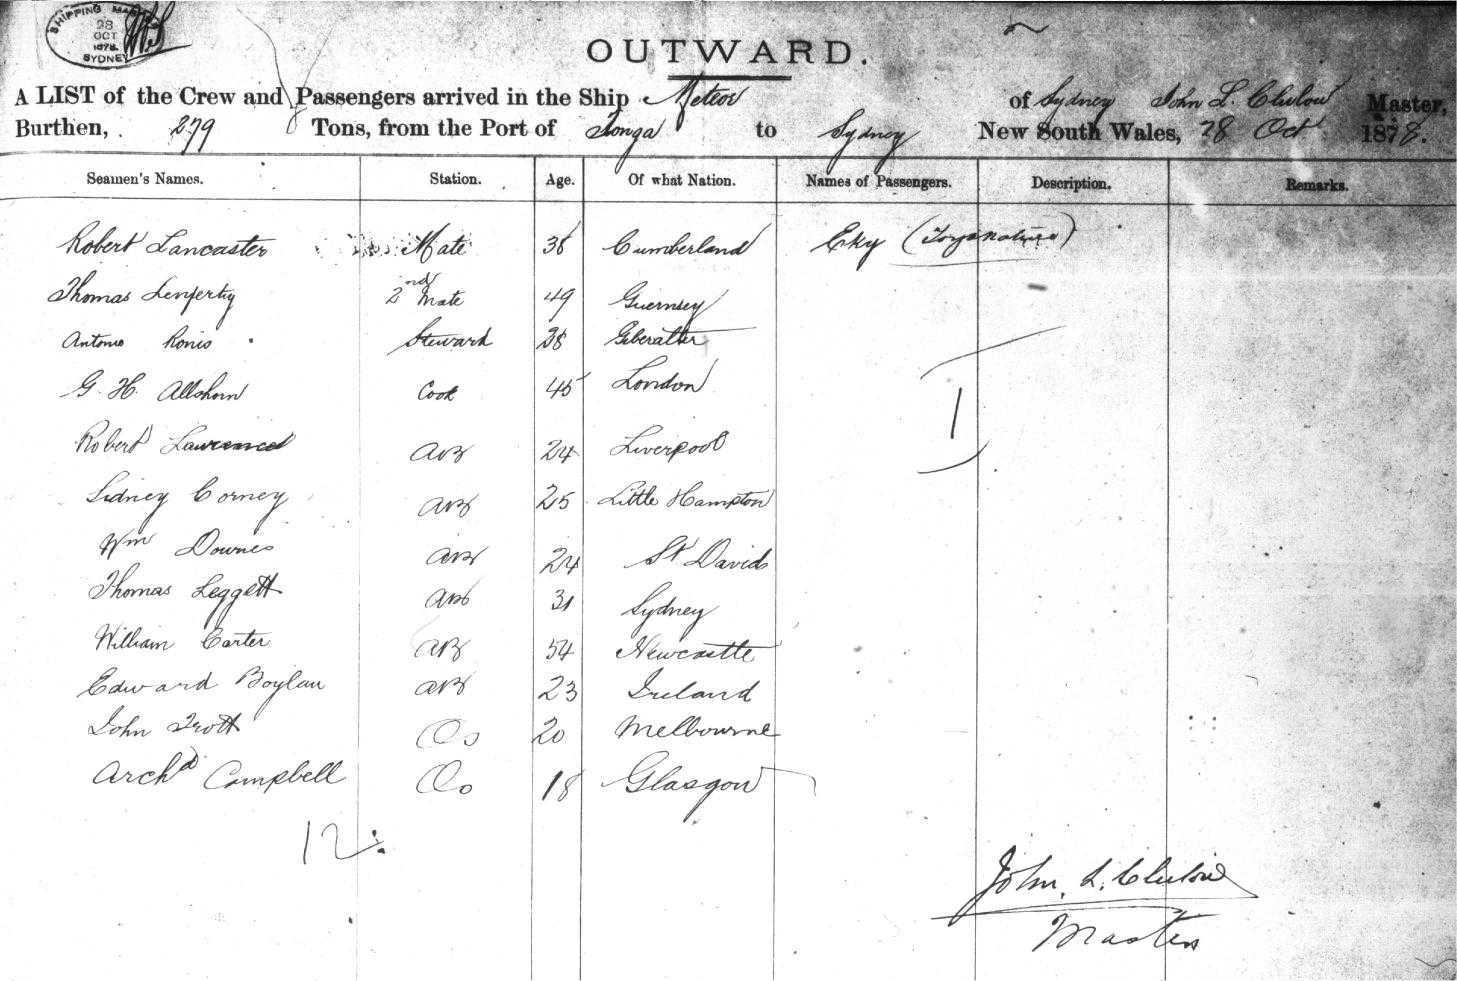 SHIPPING MAS
28
OCT
1878
SYDNEY
OUTWARD.
A LIST of the Crew and Passengers arrived in the Ship Meteor of Sydney John L. Clulow Master,
Burthen, 279 Tons, from the Port of Tonga to Sydney New South Wales, 28 Oct 1878.
Seamen's Names. Station. Age. Of what Nation. Names of Passengers. Description. Remarks.
Robert Lancaster Mate 38 Cumberland Eky
Thomas 2nd Mate 49 Guernsey
Antonio Ronis Steward 38 Giberalter
G. H. Allshorn Cook 45 London
1
Robert Lawrence AB 24 Liverpool
Sidney Corney AB 25 Little Hampton
Wm Downes AB 24 St Davids
Thomas Leggett AB 31 Sydney
William Carter AB 54 Newcastle
Edward Boylan AB 23 Ireland
John Trott Os 20 Melbourne
Archd Campbell Os 18 Glasgow
12
John. L. Clulow
Master